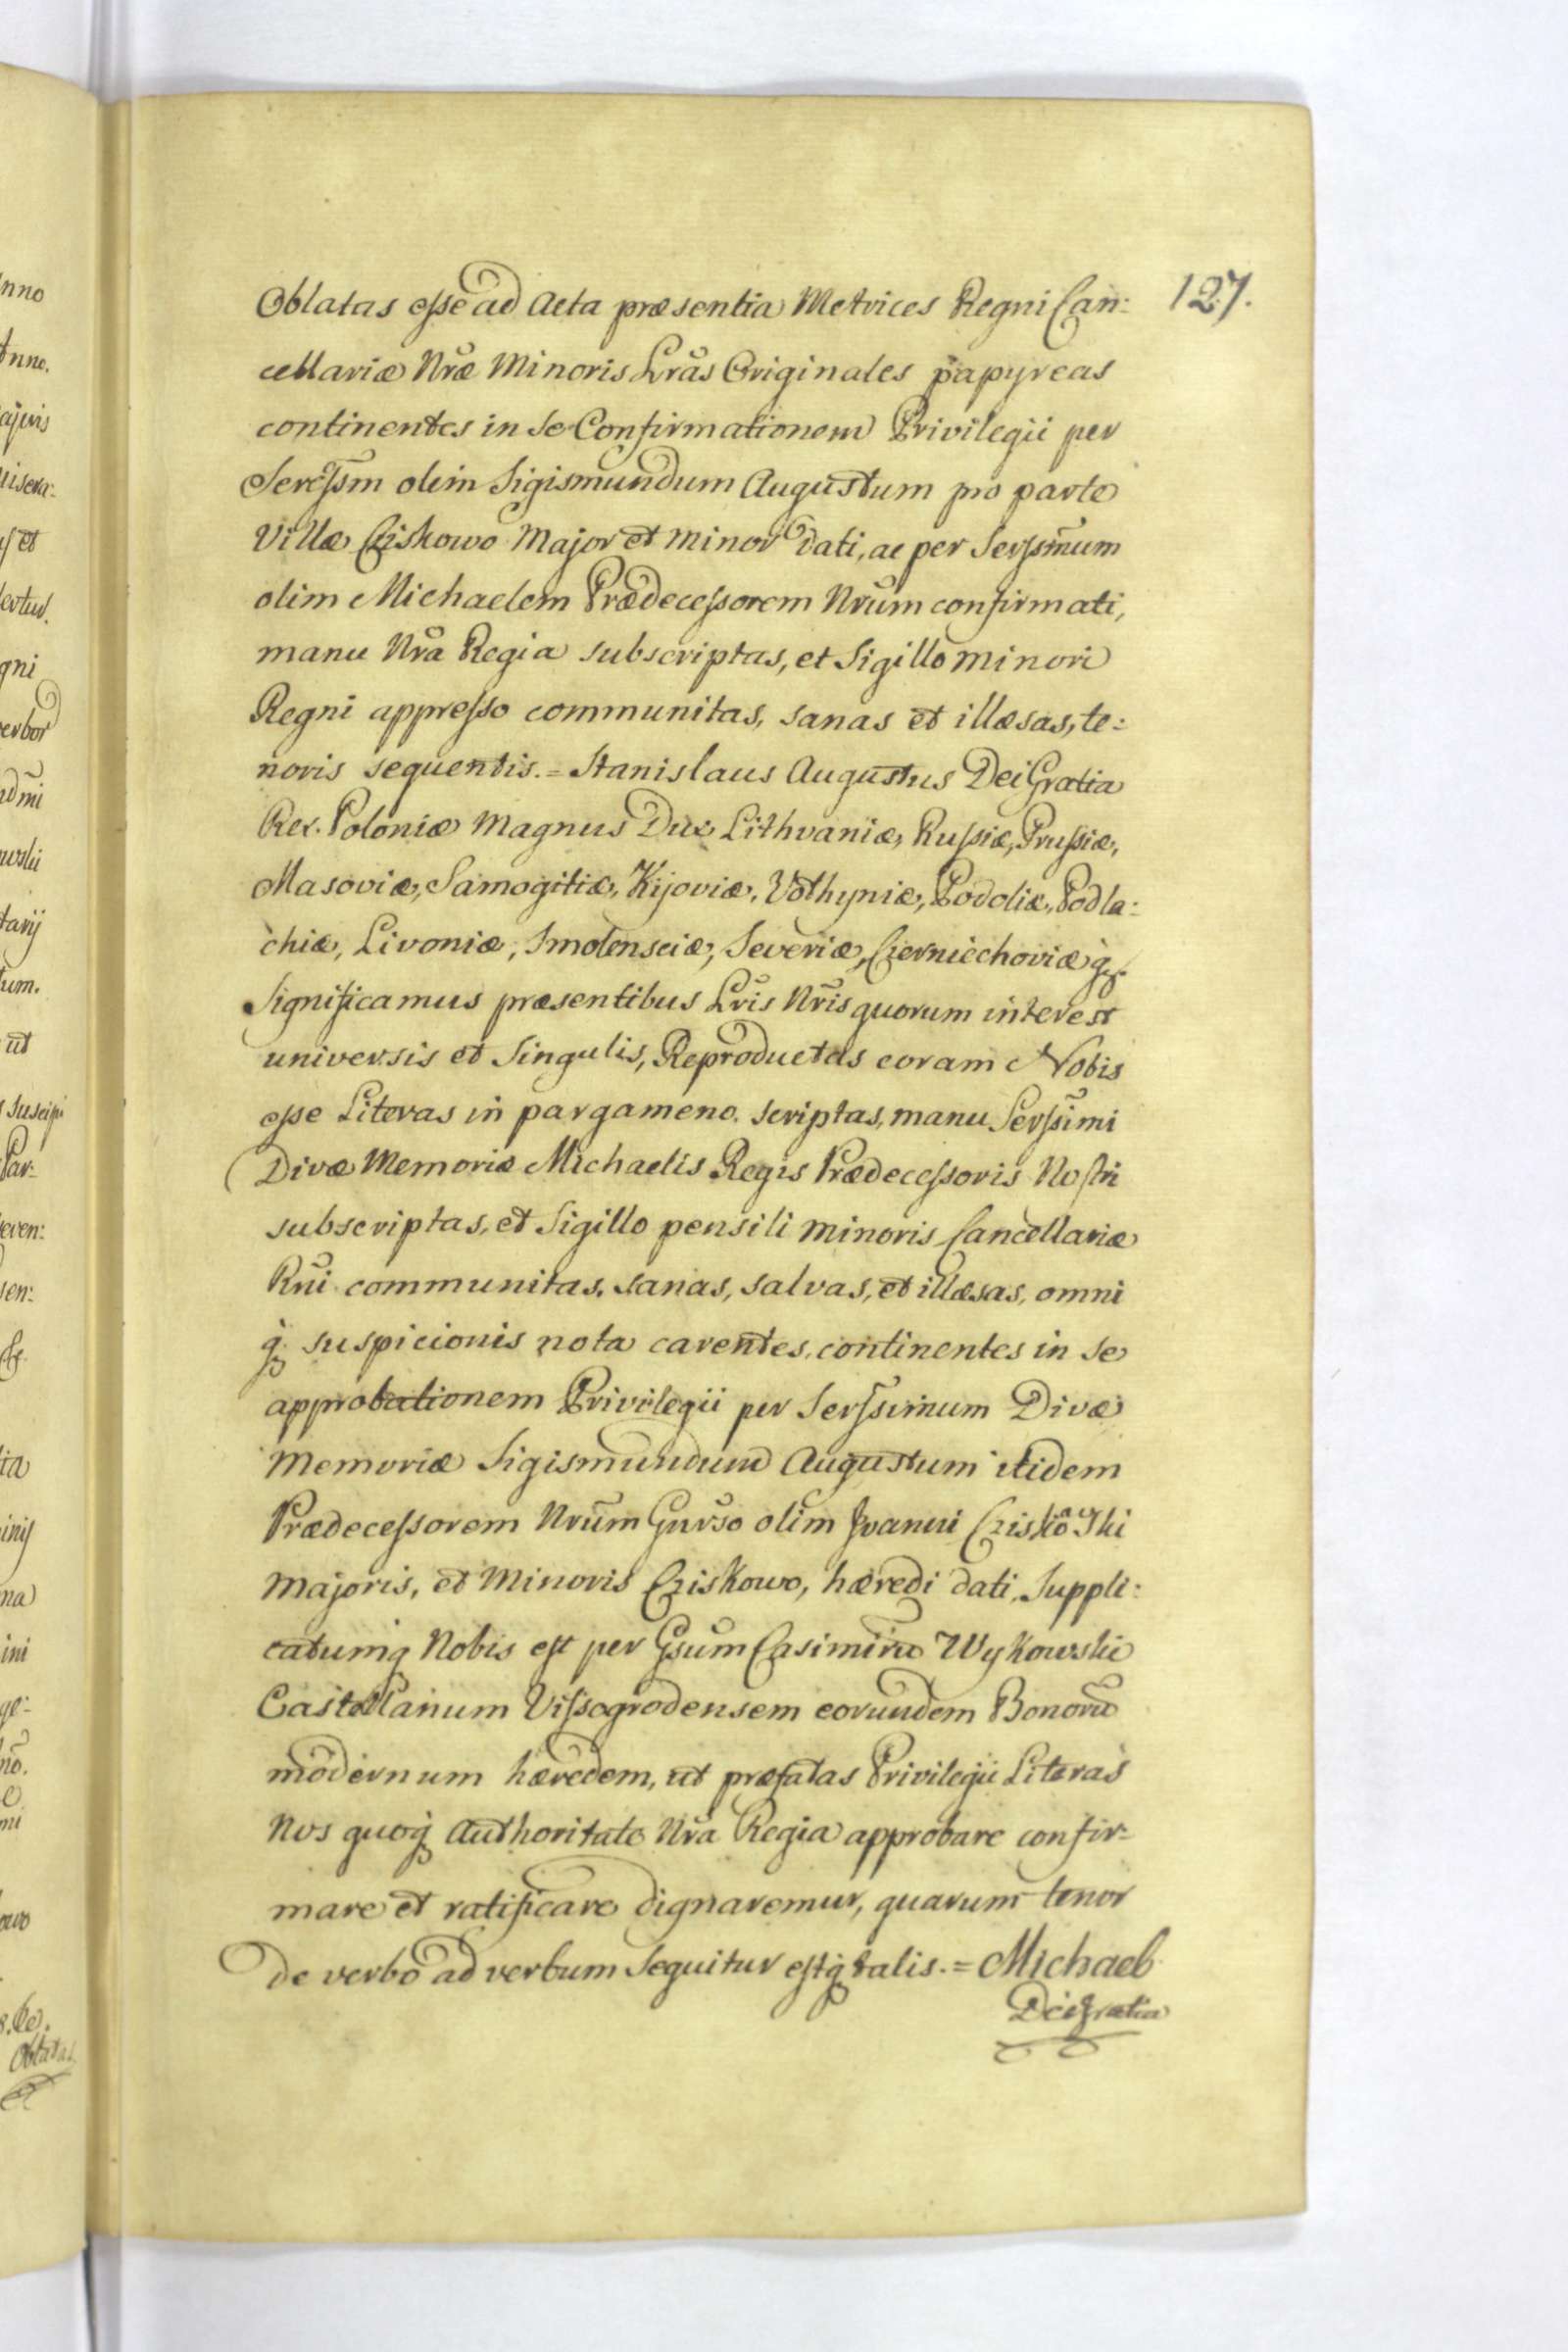 127.
Oblatas esse ad Acta præsentia Metrices Regni Can:
cellariæ Nræ Minoris Lras Originales papyreas
continentes in se Confirmationem Privilegii per
Seressm olim Sigismundum Augustum pro parte
Villæ Cziskowo Major et minor dati, ac per Serssmum
olim Michaelem Prædecessorem Nrum confirmati,
manu Nra Regia subscriptas, et Sigillo minori
Regni appresso communitas, sanas et illæsas, te:
noris sequentis. = Stanislaus Augustus Dei Gratia
Rex Poloniæ Magnus Dux Lithvaniæ, Russiæ, Prussiæ,
Masoviæ, Samogitiæ, Kijoviæ, Volhyniæ, Podoliæ, Podla:
chiæ, Livoniæ, Smolensciæ, Severiæ, Czerniechoviæ q̃
Significamus præsentibus Lris Nris quorum interest
universis et Singulis, Reproductas coram Nobis
esse Literas in pargameno scriptas, manu Serssimi
Divæ Memoriæ Michaelis Regis Prædecessoris Nostri
subscriptas, et Sigillo pensili minoris Cancellariæ
Rni communitas, sanas, salvas, et illæsas, omni
q̃ suspicionis nota carentes, continentes in se
approbationem Privilegii per Serssimum Divæ
Memoriæ Sigismundum Augustum itidem
Prædecessorem Nrum Gnrso olim Joanni Cziskoski
Majoris, et Minoris Cziskowo, hæredi dati, Suppli:
catumq̃ Nobis est per Gsum Casimiru Wykowski
Castellanum Vissogrodensem eorundem Bonoru
modernum hæredem, ut præfatas Privilegii Literas
Nos quoq̃ Authoritate Nra Regia approbare confir-
mare et ratificare dignaremur, quarum tenor
de verbo ad verbum sequitur estq̃ talis. = Michael
Dei Gratia